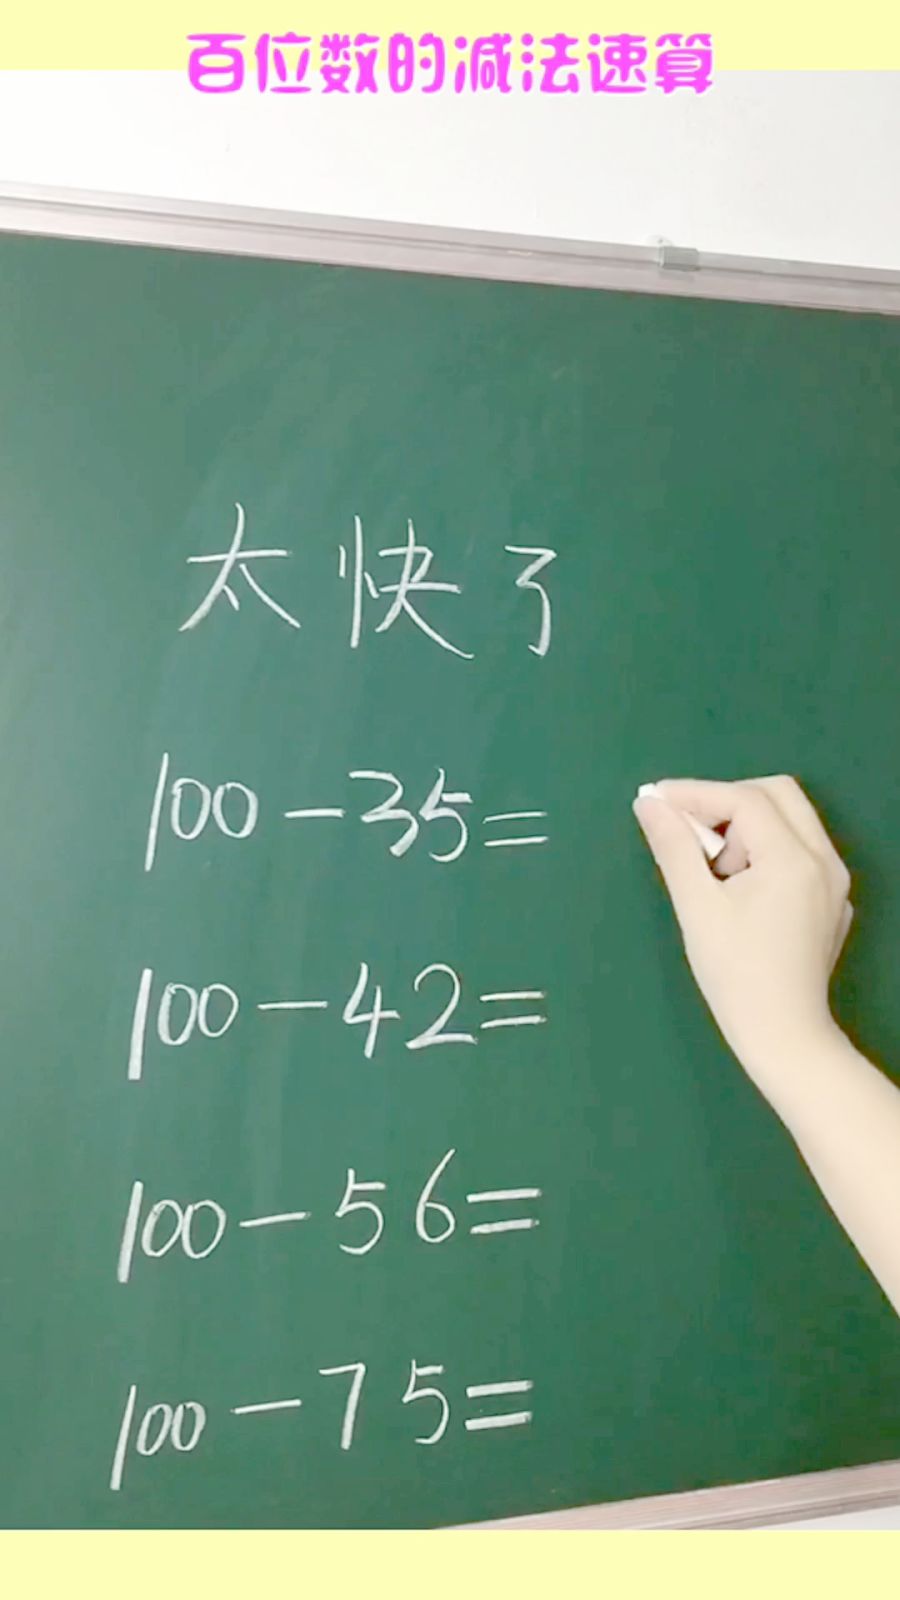 百位数的减法速算
太快了
100-35=
100-42=
100-56=
100-75=